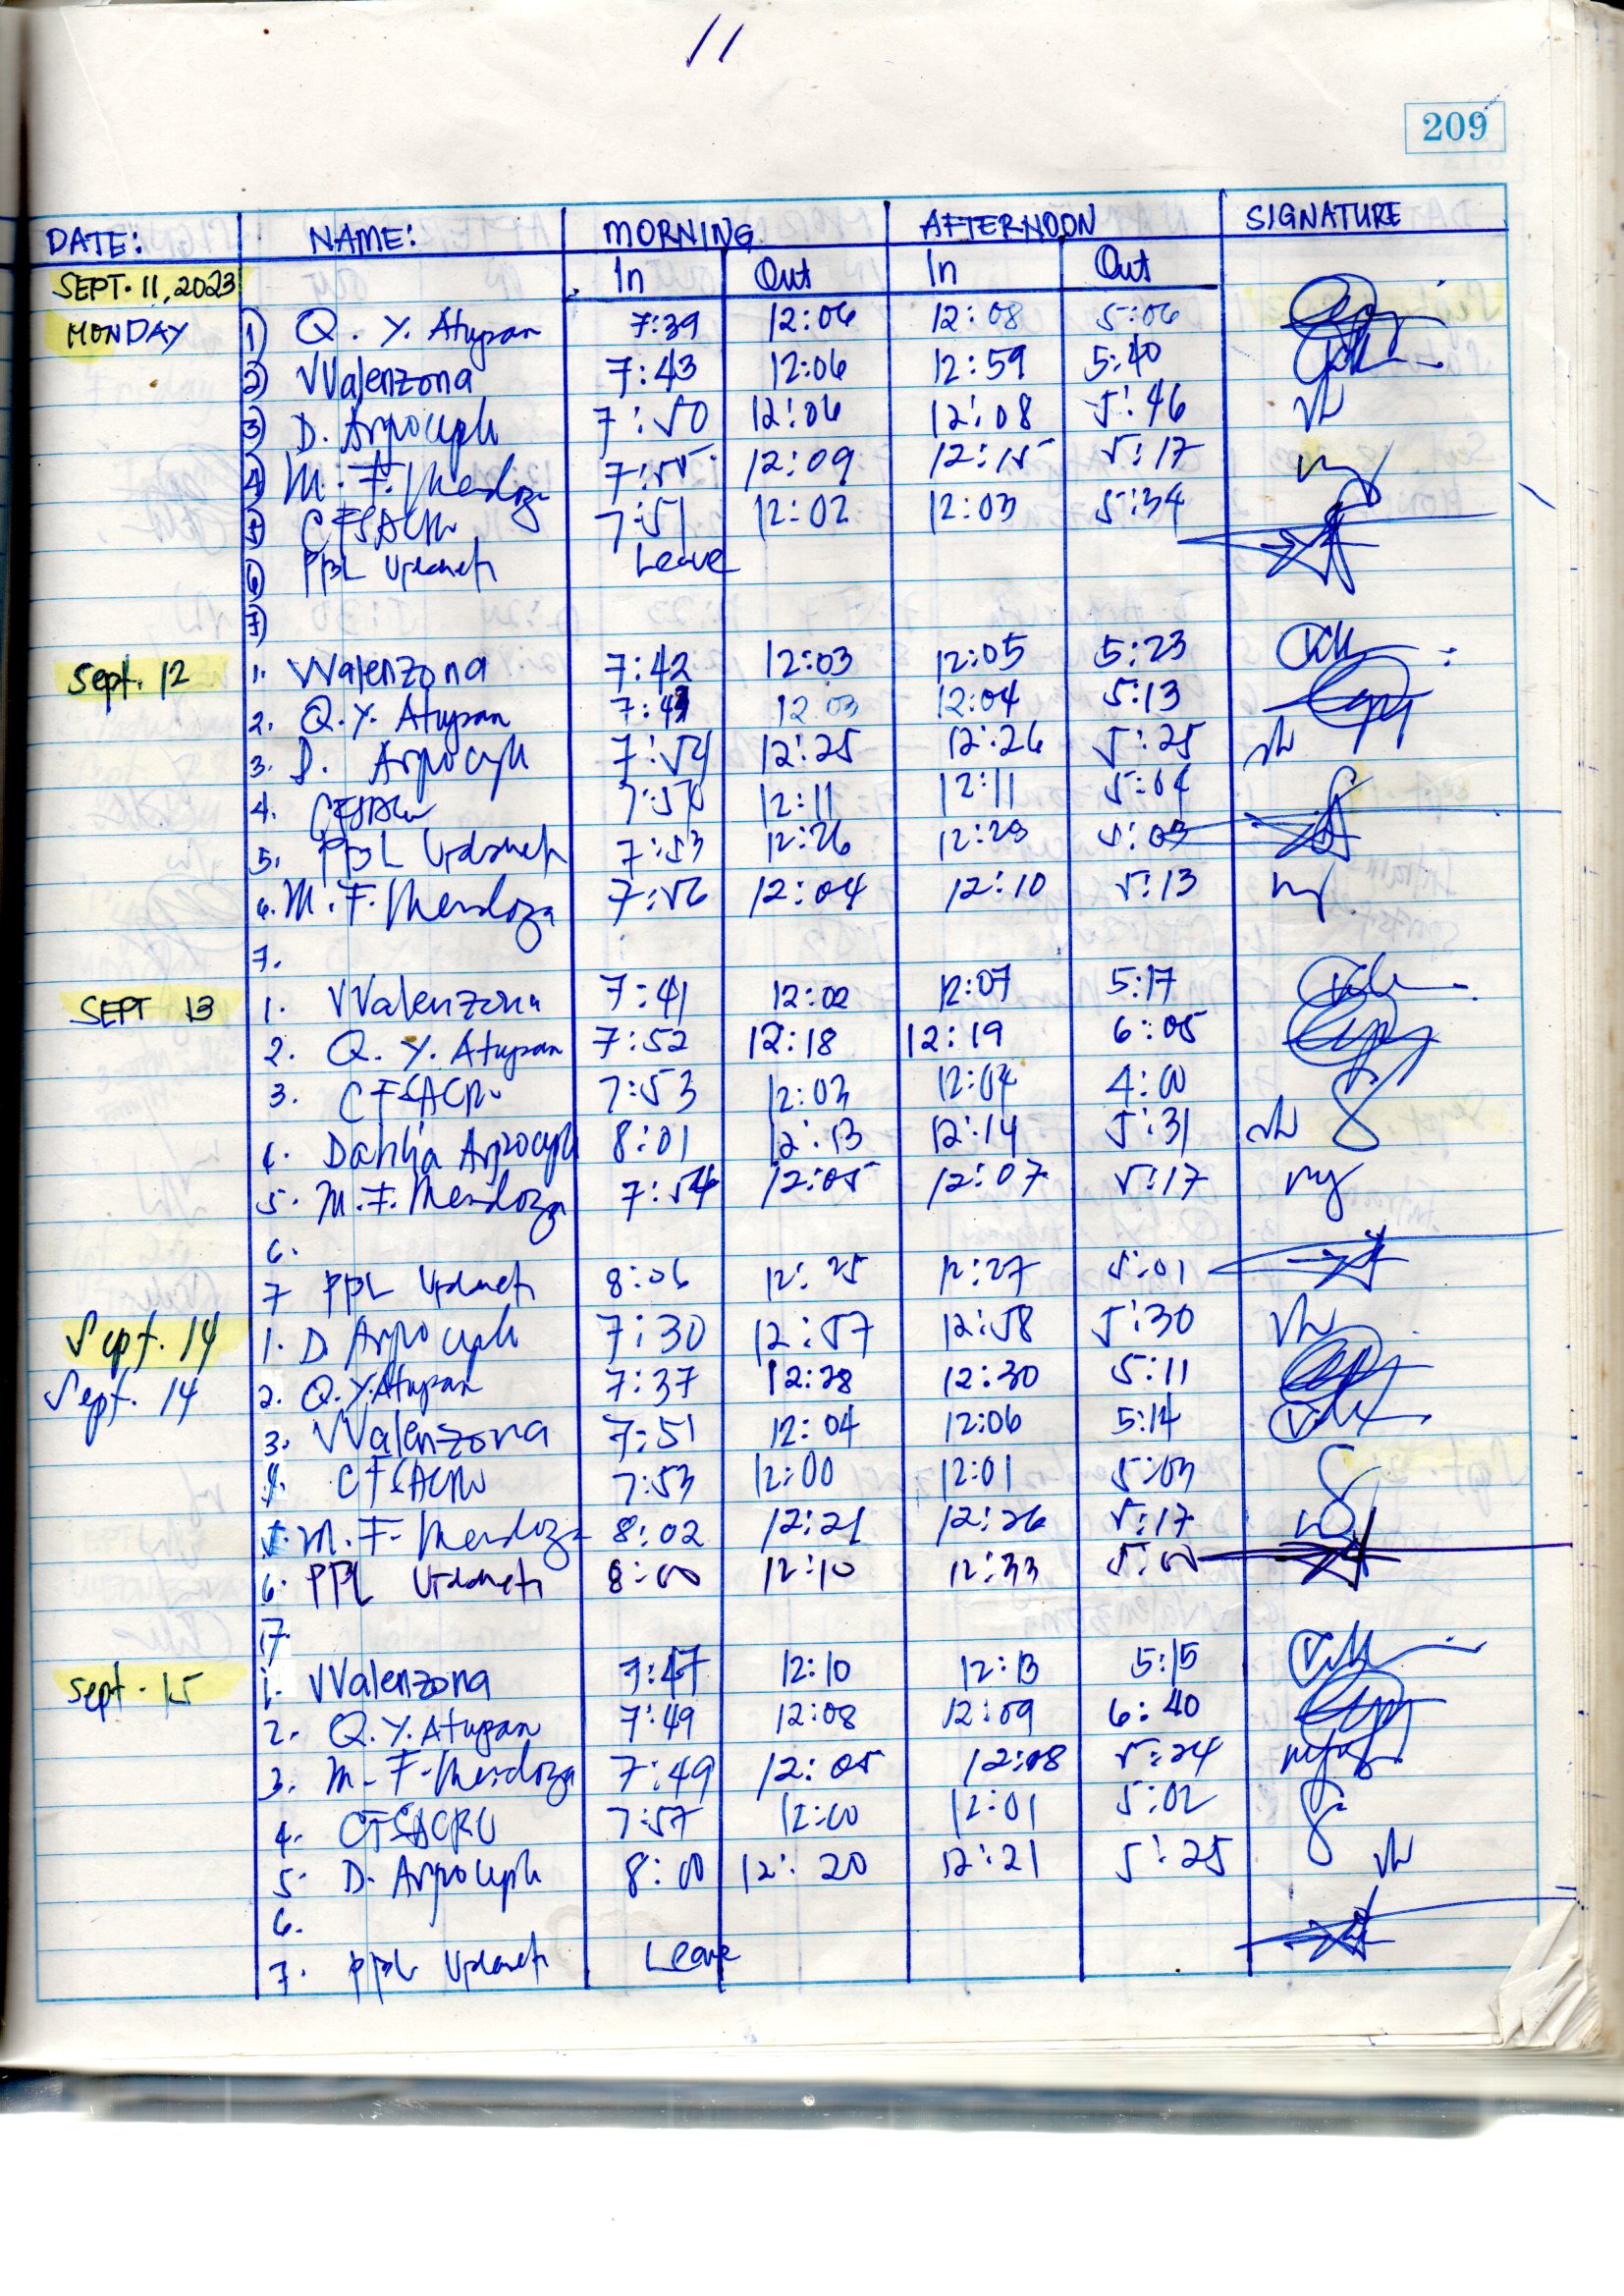 11
209
DATE: NAME: MORNING AFTERNOON SIGNATURE
SEPT. 11, 2023 In Out In Out
MONDAY 1) Q. Y. Atupan 7:39 12:06 12:08 5:06
2) VValenzona 7:43 12:06 12:59 5:40
3) D. 7:50 12:06 12:08 5:46
4) M. F. Mendoza 7:55 12:09 12:15 5:17
5) CFSACRU 7:51 12:02 12:03 5:34
6) PBL Leave
7)
Sept. 12 1. VValenzona 7:42 12:03 12:05 5:23
2. Q. Y. Atupan 12:03 12:04 5:13
3. D. 7:54 12:25 12:26 5:25
4. 12:11 12:11 5:04
5. PBL 7:53 12:26 12:28 5:03
6. M. F. Mendoza 7:56 12:04 12:10 5:13
7.
SEPT 13 1. VValenzona 7:41 12:02 12:07 5:17
2. Q. Y. Atupan 7:52 12:18 12:19 6:05
3. CFSACRU 7:53 12:03 12:04 4:00
4. Dahlia 8:01 12:13 12:14 5:31
5. M. F. Mendoza 7:54 12:05 12:07 5:17
6.
7 PBL 8:06 12:25 12:27 5:01
Sept. 14 1. D. 7:30 12:57 12:58 5:30
Sept. 14 2. Q. Y. Atupan 7:37 12:28 12:30 5:11
3. VValenzona 7:51 12:04 12:06 5:14
4. CFSACRU 7:53 12:00 12:01 5:03
5. M. F. Mendoza 8:02 12:21 12:26 5:17
6. PBL 8:00 12:10 12:33 5:00
7.
Sept. 15 1. VValenzona 7:47 12:10 12:13 5:15
2. Q. Y. Atupan 7:49 12:08 12:09 6:40
3. M. F. Mendoza 7:49 12:05 12:08 5:24
4. CFSACRU 7:57 12:00 12:01 5:02
5. D. 8:00 12:20 12:21 5:25
6.
7. PBL Leave